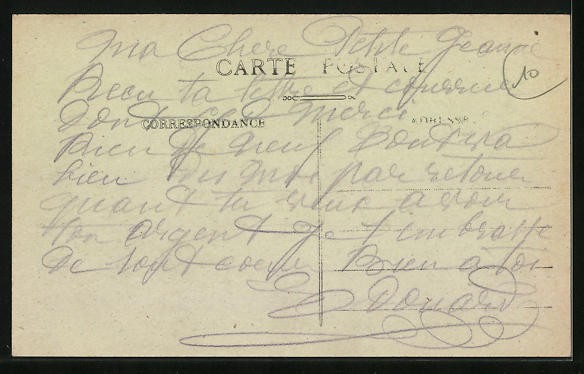 Ma Chere Petite Jeanne
CARTE POSTALE
Recu ta lettre et
dont Merci
CORRESPONDANCE
ADRESSE
Rien de neuf
bien dis moi par retour
quant tu veux avoir
ton argent je t'embrasse
de tout coeur Bien a toi
Edouard
10